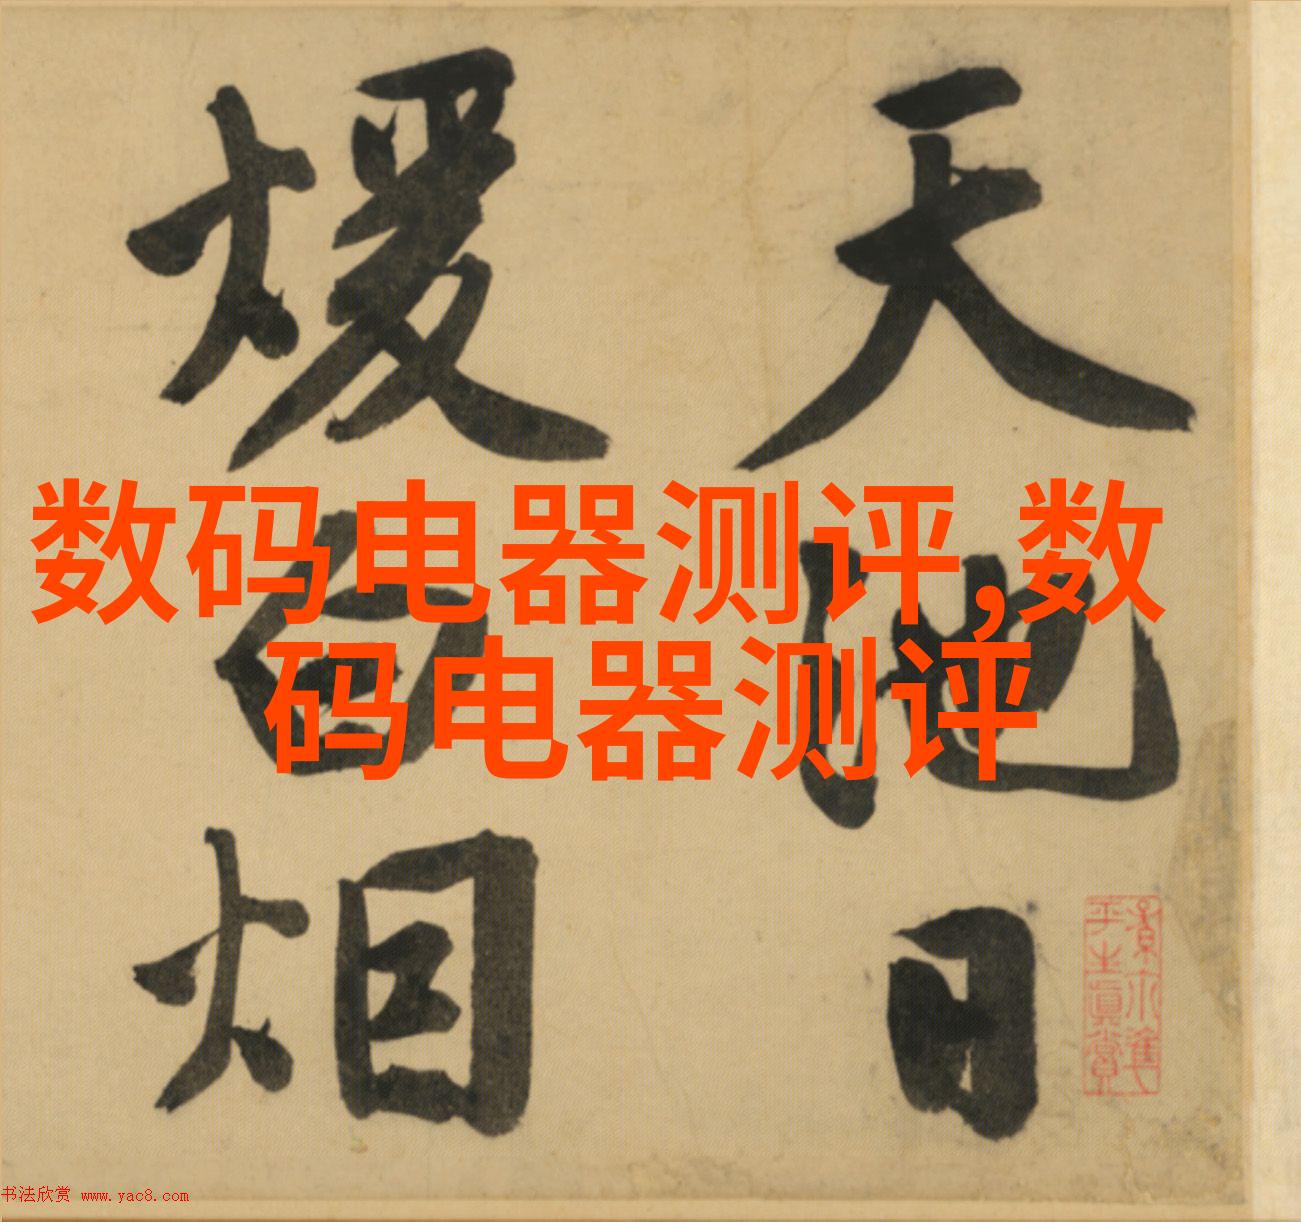 数码电器测评,数
码电器测评
天
日
煖
平生真賞
书法欣赏 www.yac8.com